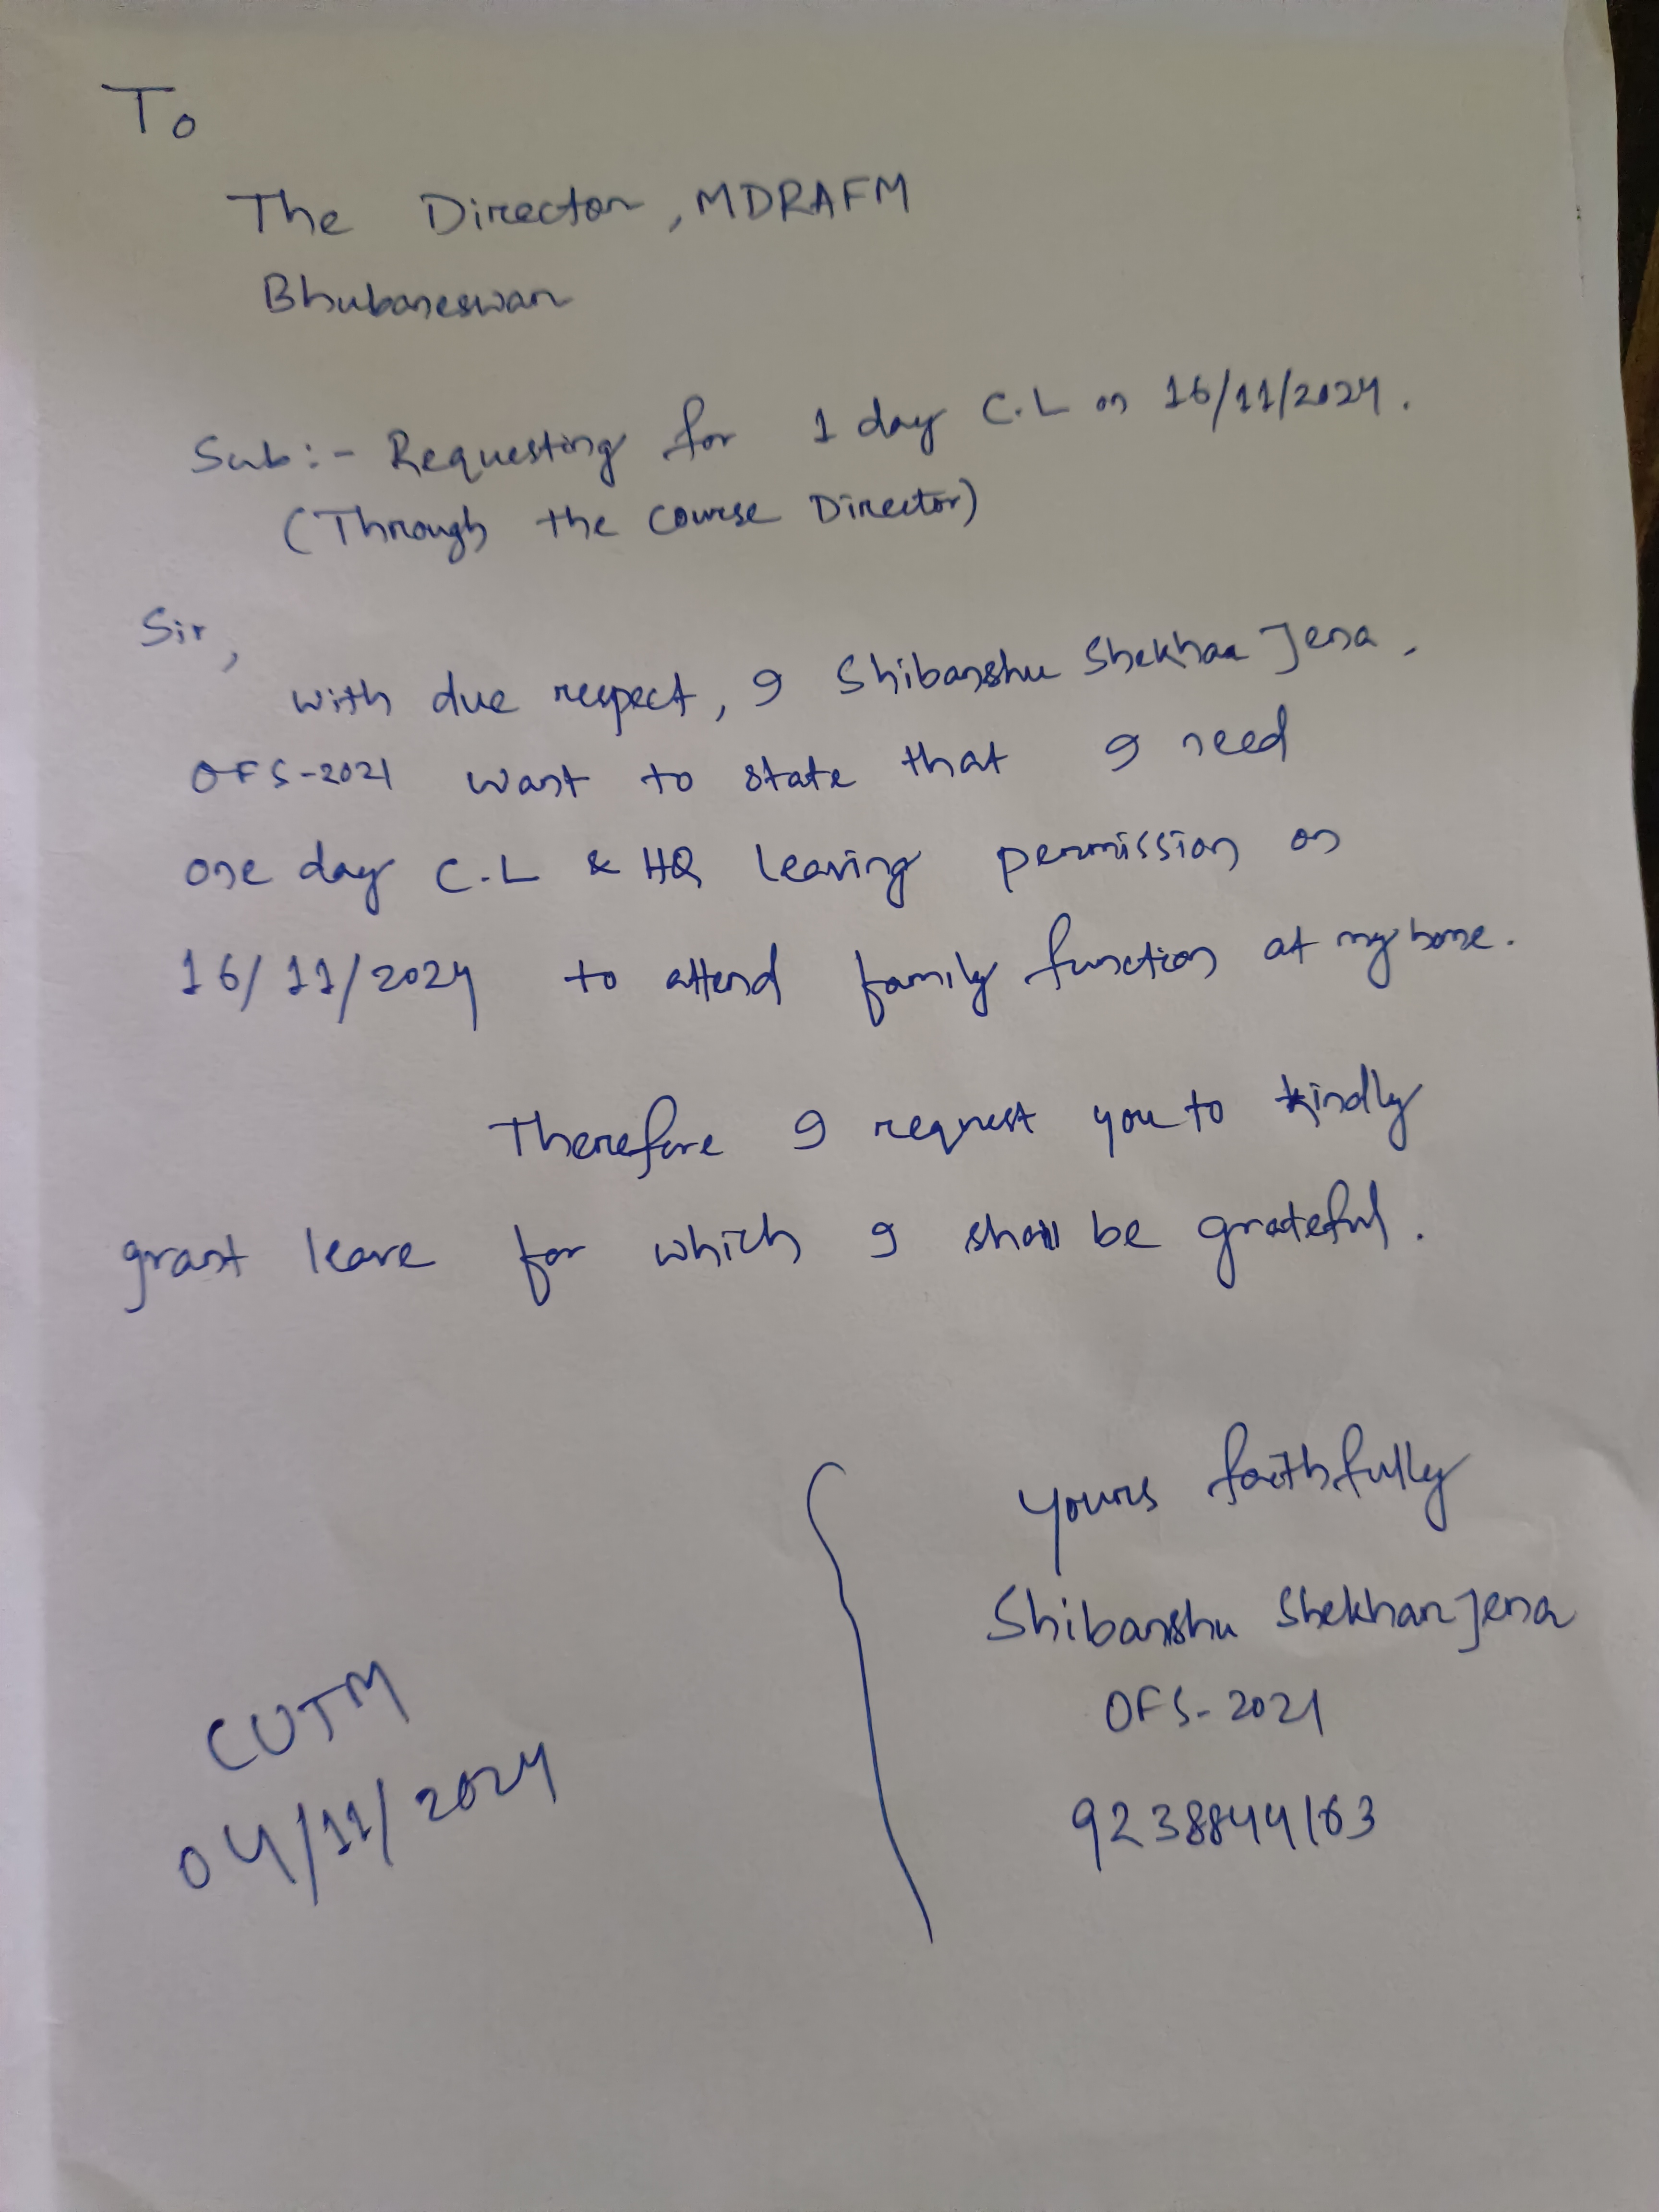 To
The Director, MDRAFM
Bhubaneswar
Sub:- Requesting for 1 day C.L on 16/11/2024.
(Through the course Director)
Sir,
with due respect, I Shibanshu Shekhar Jena,
OFS-2021 want to state that I need
one day C.L & HQ leaving permission on
16/11/2024 to attend family function at my home.
Therefore I request you to kindly
grant leave for which I shall be grateful.
yours faithfully
Shibanshu Shekhar Jena
OFS-2021
9238844163
CUTM
04/11/2024